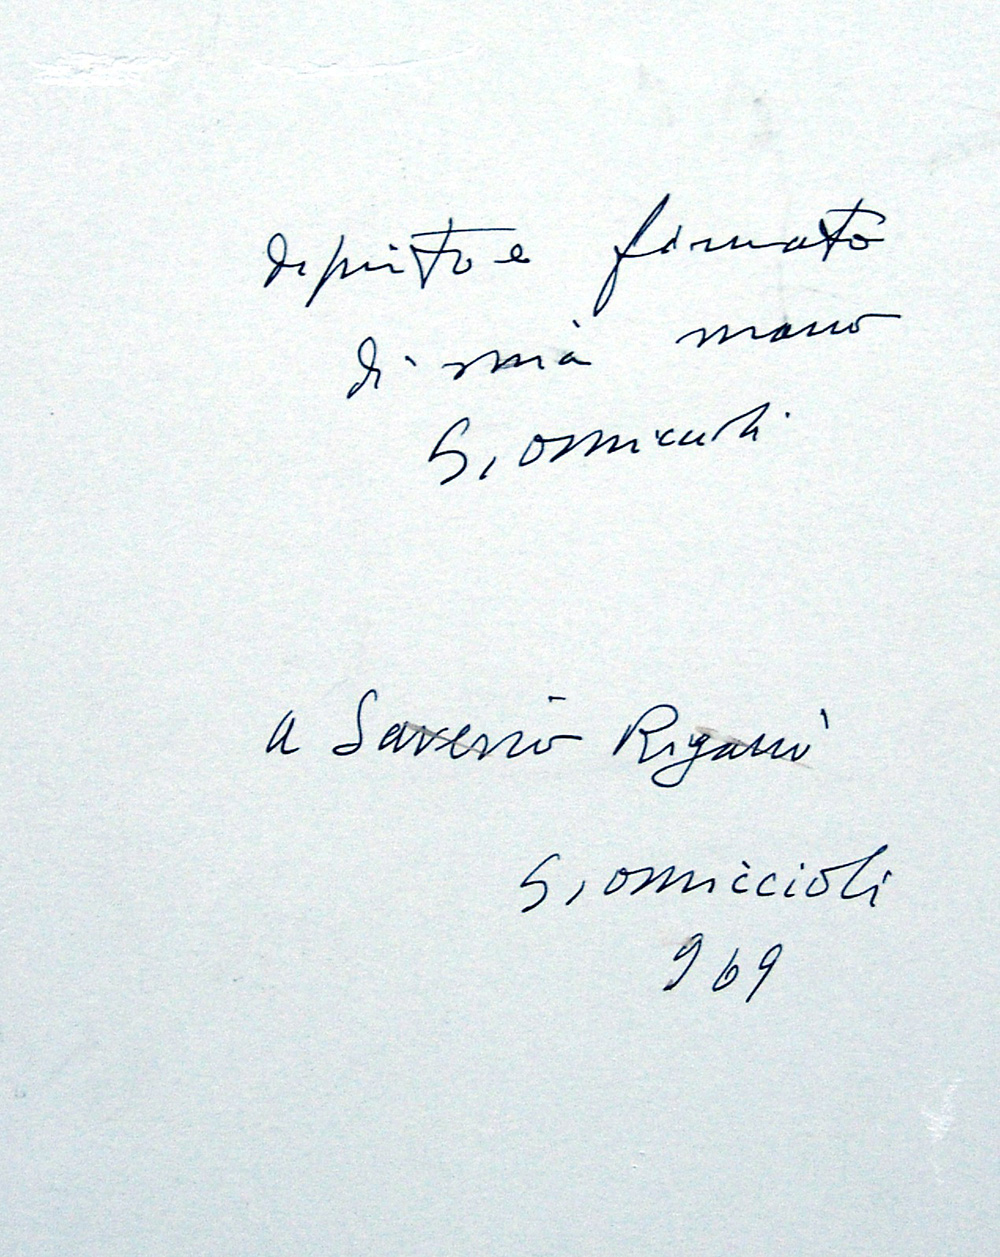 dipinto e firmato
di mia mano
G, omiccioli
a Saverio Riganò
G, omiccioli
969